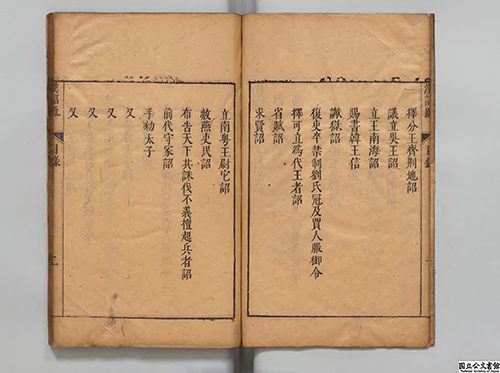 擇分王齊荊地詔
議立吳王詔
立王南海詔
賜書韓王信
讞獄詔
復吏卒禁制劉氏冠及賈人服御令
擇可立為代王者詔
省賦詔
求賢詔
立南粵王尉它詔
赦燕吏民詔
布告天下共誅伐不義擅起兵者詔
前代守冢詔
手勑太子
又
又
又
又
目錄
国立公文書館
National Archives of Japan